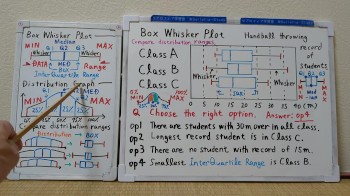 Box Whisker Plot
Median
MIN Q1 Q2 Q3 MAX
Whisker Whisker
DATA MED Range
Box
Inter-Quartile Range
Distribution Graph
MIN MED MAX
25% 25%
0% 25% 50% 75% 100%
Compare distribution ranges
Distribution BOX
Box Whisker Plot
Compare distribution ranges. Handball throwing
Class A
Class B
Class C
record of Students
Whisker Whisker
IQR
0 5 10 15 20 25 30 35 40 (m)
MIN MAX
Q Choose the right option. Answer: op4
op1 There are students with 30m over in all class.
op2 Longest record student is in Class C.
op3 There are no student with record of 15m.
op4 Smallest InterQuartile Range is Class B.